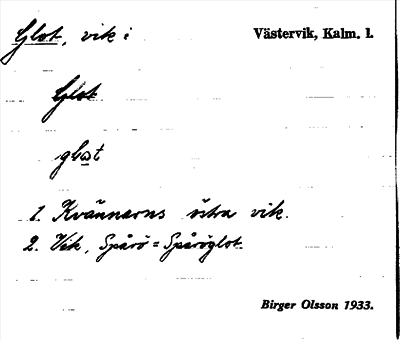 Glot, vik i Västervik, Kalm. l.
Glot
glot
1. Kvännarns östra vik.
2. Vik, Spårö = Spåröglot.
Birger Olsson 1933.